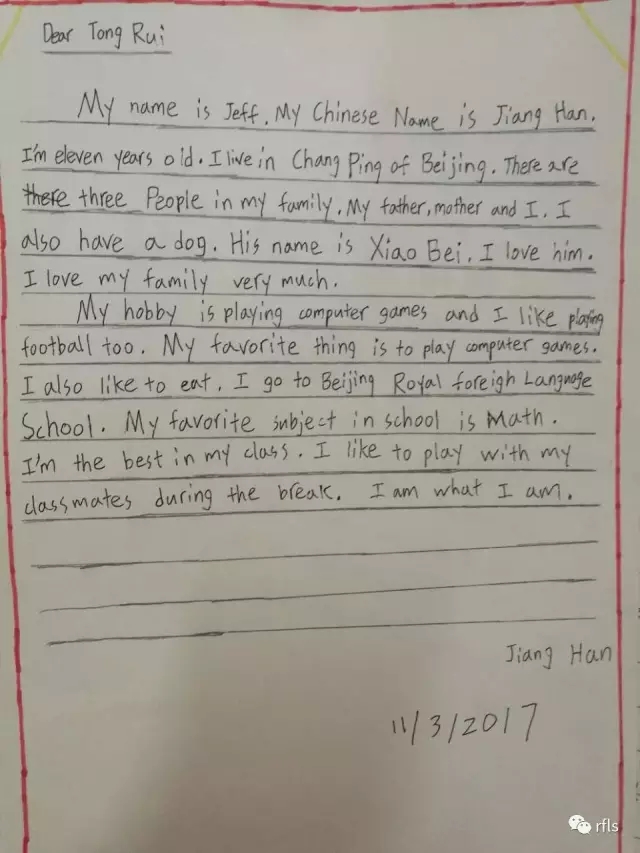 Dear Tong Rui
My name is Jeff. My Chinese Name is Jiang Han.
I'm eleven years old. I live in Chang Ping of Beijing. There are
there three People in my family. My father, mother and I. I
also have a dog. His name is Xiao Bei. I love him.
I love my family very much.
My hobby is playing computer games and I like playing
football too. My favorite thing is to play computer games.
I also like to eat. I go to Beijing Royal foreigh Language
School. My favorite subject in school is Math.
I'm the best in my class. I like to play with my
classmates during the break. I am what I am.
Jiang Han
11/3/2017
rfls